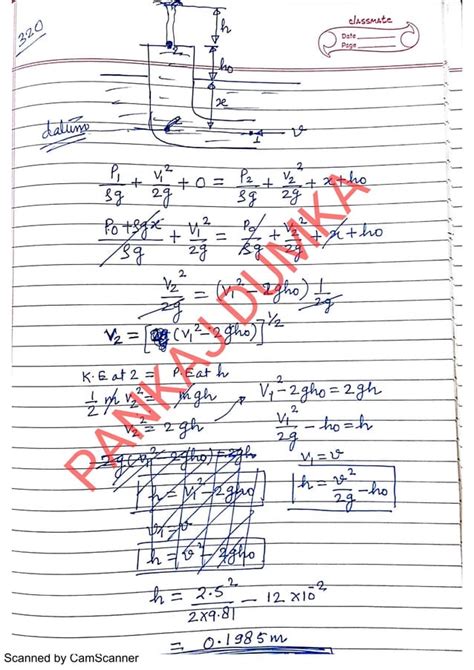 320
classmate
Date
Page
h
h0
x
2
datum
1 v
P1/ρg + V1²/2g + 0 = P2/ρg + V2²/2g + x + h0
P0 + ρgx/ρg + V1²/2g = P0/ρg + V2²/2g + x + h0
V2²/2g = (V1² - 2gh0) 1/2g
V2 = [(V1² - 2gh0)]^1/2
K.E at 2 = P.E at h
1/2 m V2² = mgh
V2² = 2gh
V1² - 2gh0 = 2gh
V1²/2g - h0 = h
V1 = v
h = v²/2g - h0
2g(V1² - 2gh0) = 2gh
h = V1² - 2gh0
V1 = v
h = v² - 2gh0
h = 2.5²/2×9.81 - 12×10⁻²
= 0.1985m
PANKAJ DUMKA
Scanned by CamScanner